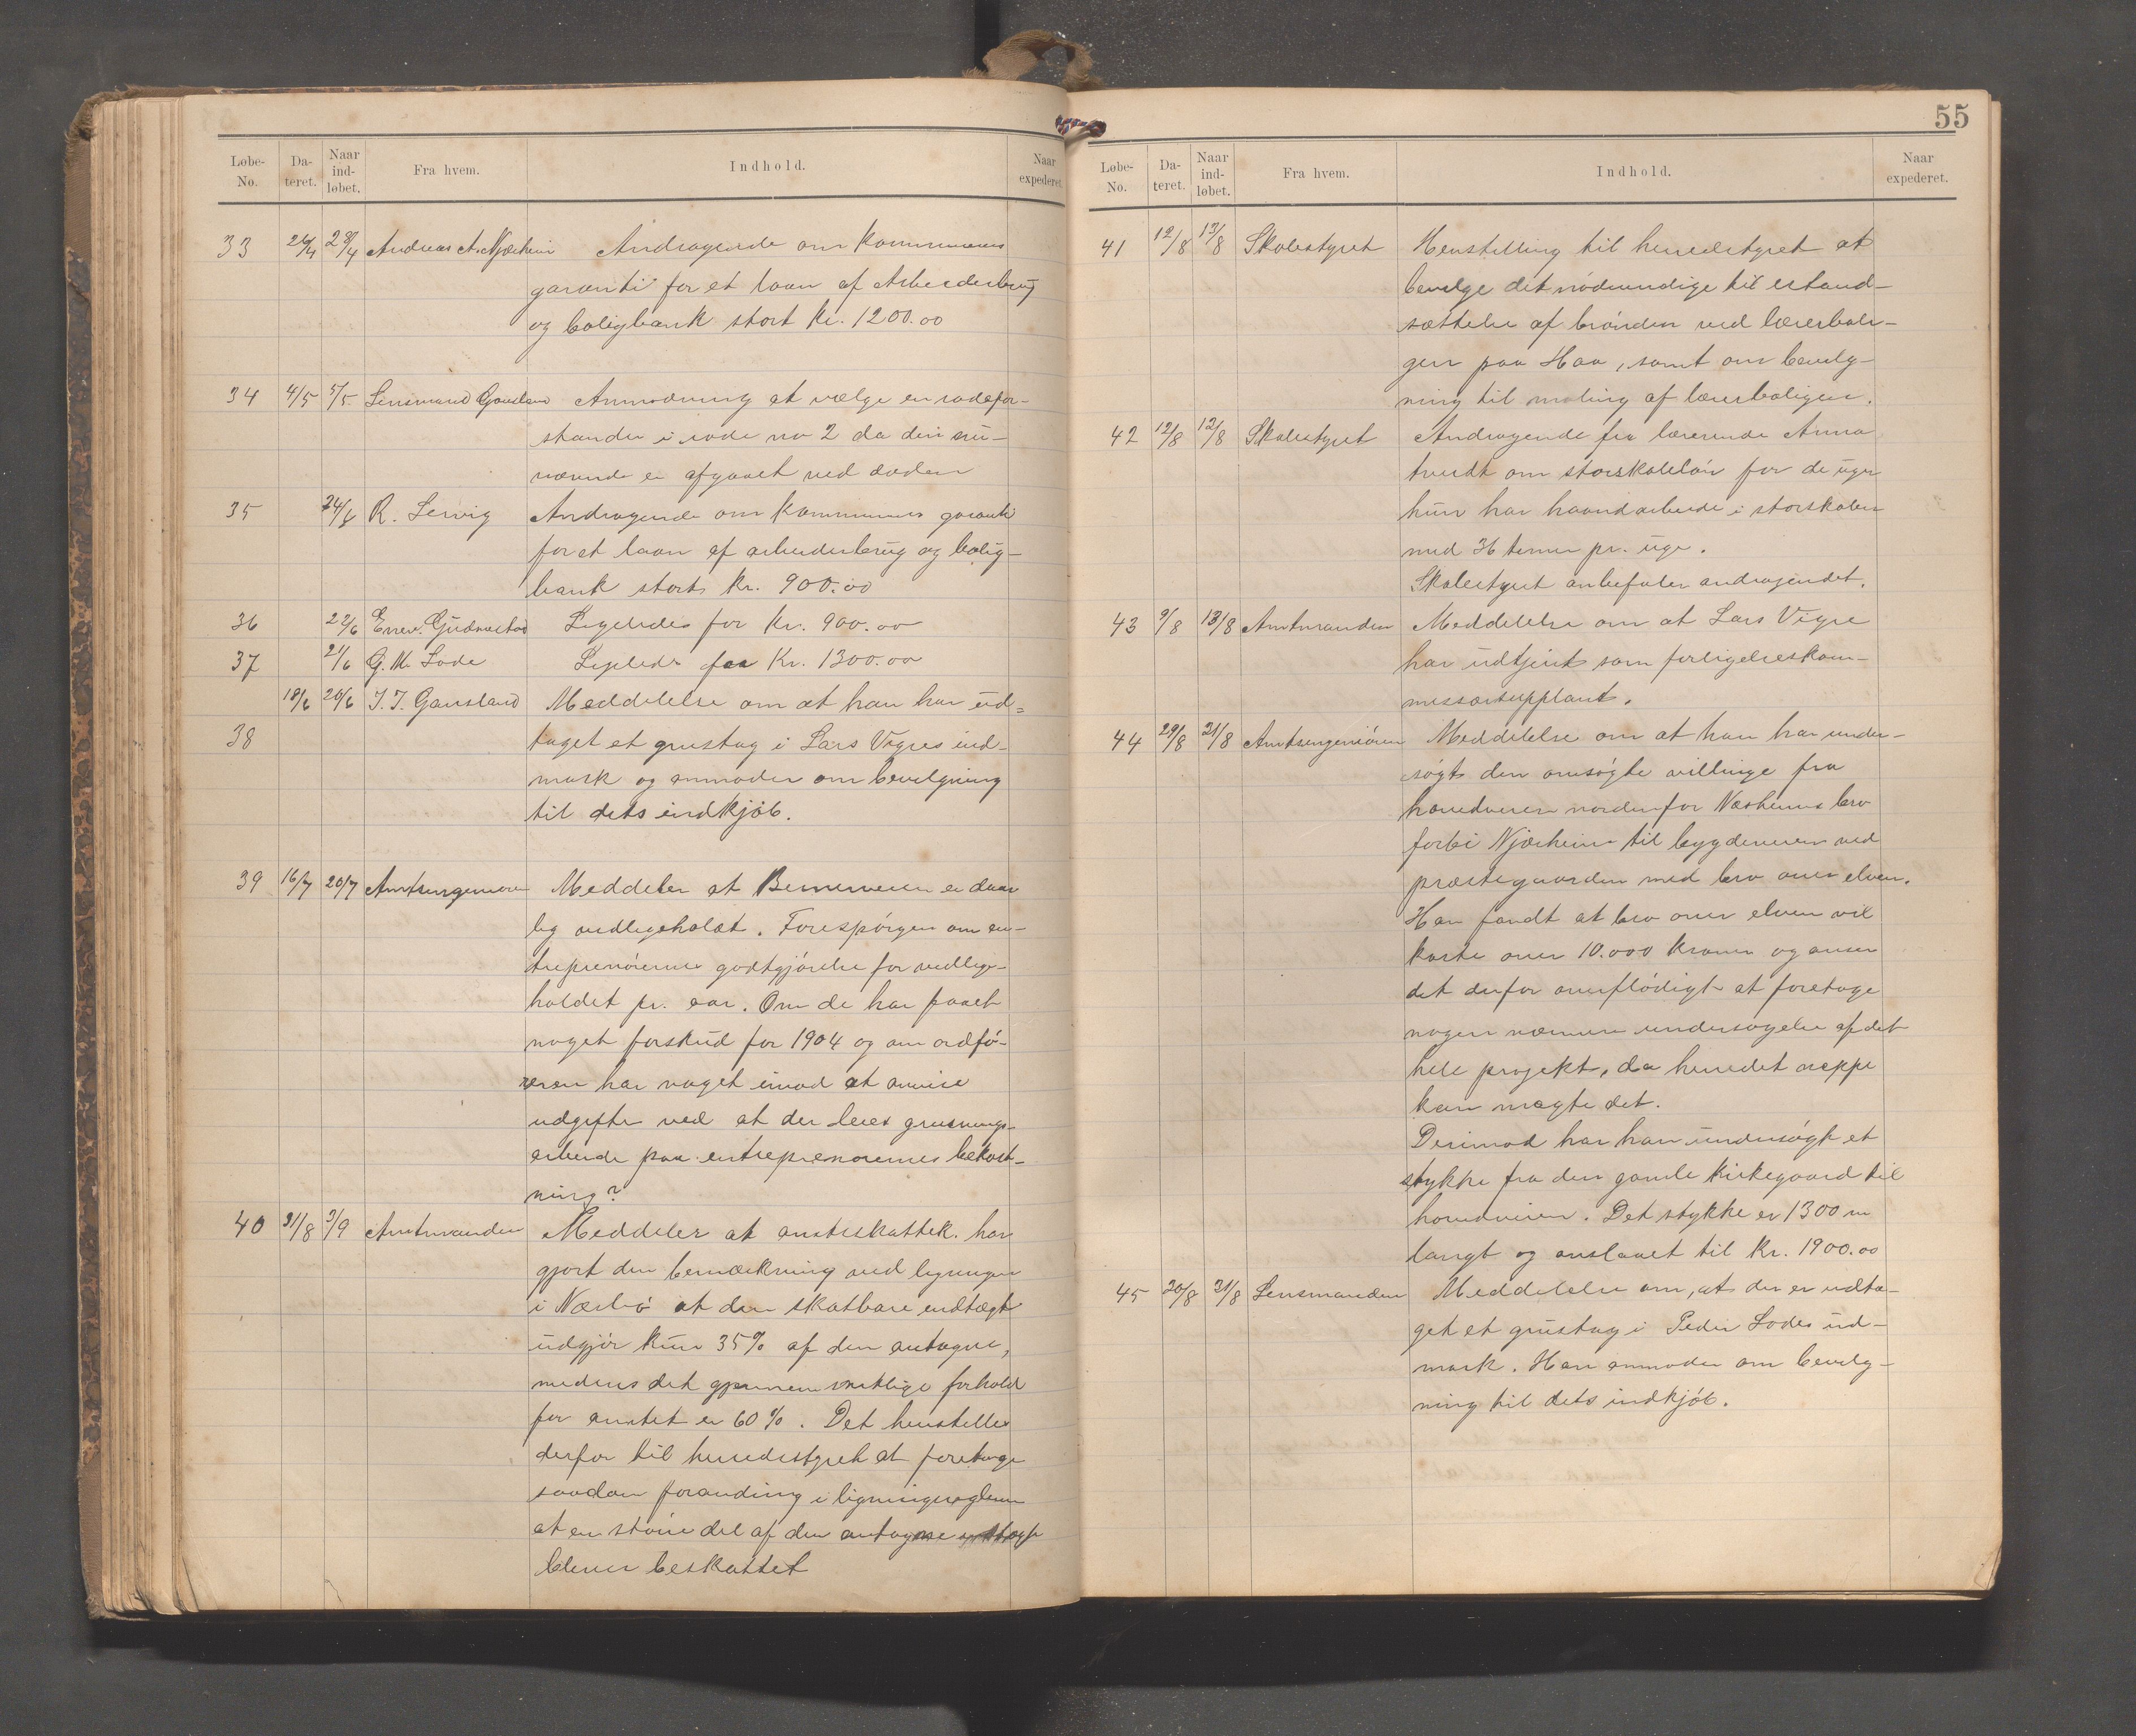 Løbe-No. Da-teret. Naar ind-løbet. Fra hvem. Indhold. Naar expederet.
33 26/4 28/4 Andreas A. Njærheim Andragende om kommunens
garanti for et laan af Arbeiderbrug
og boligbank stort kr. 1200.00
34 4/5 5/5 Lensmand Gausland Anmodning at vælge en rodefor-
stander i rode no 2 da den nu-
nævnde er afgaaet ved døden
35 24/6 R. Servig Andragende om kommunens garanti
for et laan af arbeiderbrug og bolig-
bank stort kr. 900.00
36 22/6 Enev. Gudmestad Ligeledes for kr. 900.00
37 21/6 G. M. Lode Ligeleds faa Kr. 1300.00
18/6 20/6 T. T. Gausland Meddelelse om at han har ud-
38 taget et grustag i Lars Vigres ind-
mark og anmoder om bevilgning
til dets indkjøb.
39 16/7 20/7 Amtsingeniøren Meddeler at veien er daar-
lig vedligeholdt. Forespørgen om en-
treprenørernes godtgjørelse for vedlige-
holdet pr. aar. Om de har faaet
noget forskud for 1904 og om ordfø-
reren har noget imod at anvise
udgifter ved at der leies grusnings-
arbeide paa entreprenørernes bekost-
ning?
40 31/8 3/9 Amtmanden Meddeler at amtsskattek. har
gjort den bemærkning ved ligningen
i Nærbø at den skatbare indtægt
udgjør kun 35% af den antagne,
medens det gjennemsnitlige forhold
for amtet er 60%. Det henstilles
derfor til herredsstyret at foretage
saadan forandring i ligningsreglerne
at en større del af den antagne
bliver beskattet
55
Løbe-No. Da-teret. Naar ind-løbet. Fra hvem. Indhold. Naar expederet.
41 12/8 13/8 Skolestyret Henstilling til herredstyret at
bevilge det nødvendige til istand-
sættelse af brønden ved lærerboli-
gen paa Haa, samt om bevilg-
ning til maling af lærerboligen.
42 12/8 12/8 Skolestyret Andragende fra lærerinde Anna
om storskoleløn for de uger
hun har haandarbeide i storskolen
med 36 timer pr. uge.
Skolestyret anbefaler andragendet.
43 9/8 13/8 Amtmanden Meddelelse om at Lars Vigre
har udtjent som forligelseskom-
missærsupplant.
44 29/8 31/8 Amtsingeniøren Meddelelse om at han har under-
søgt den omsøgte veilinje fra
hovedveien nordenfor Næsheims bro
forbi Njærheim til bygdeveien ved
præstegaarden med bro over elven.
Han fandt at bro over elven vil
koste over 10.000 kroner og anser
det derfor overflødigt at foretage
nogen nærmere undersøgelse af det
hele projekt, da herredet neppe
kan magte det.
Derimod har han undersøgt et
stykke fra den gamle kirkegaard til
hovedveien. Det stykke er 1300 m
langt og anslaaet til kr. 1900.00
45 30/8 31/8 Lensmanden Meddelelse om, at der er udta-
get et grustag i Peder Lodes ud-
mark. Han anmoder om bevilg-
ning til dets indkjøb.